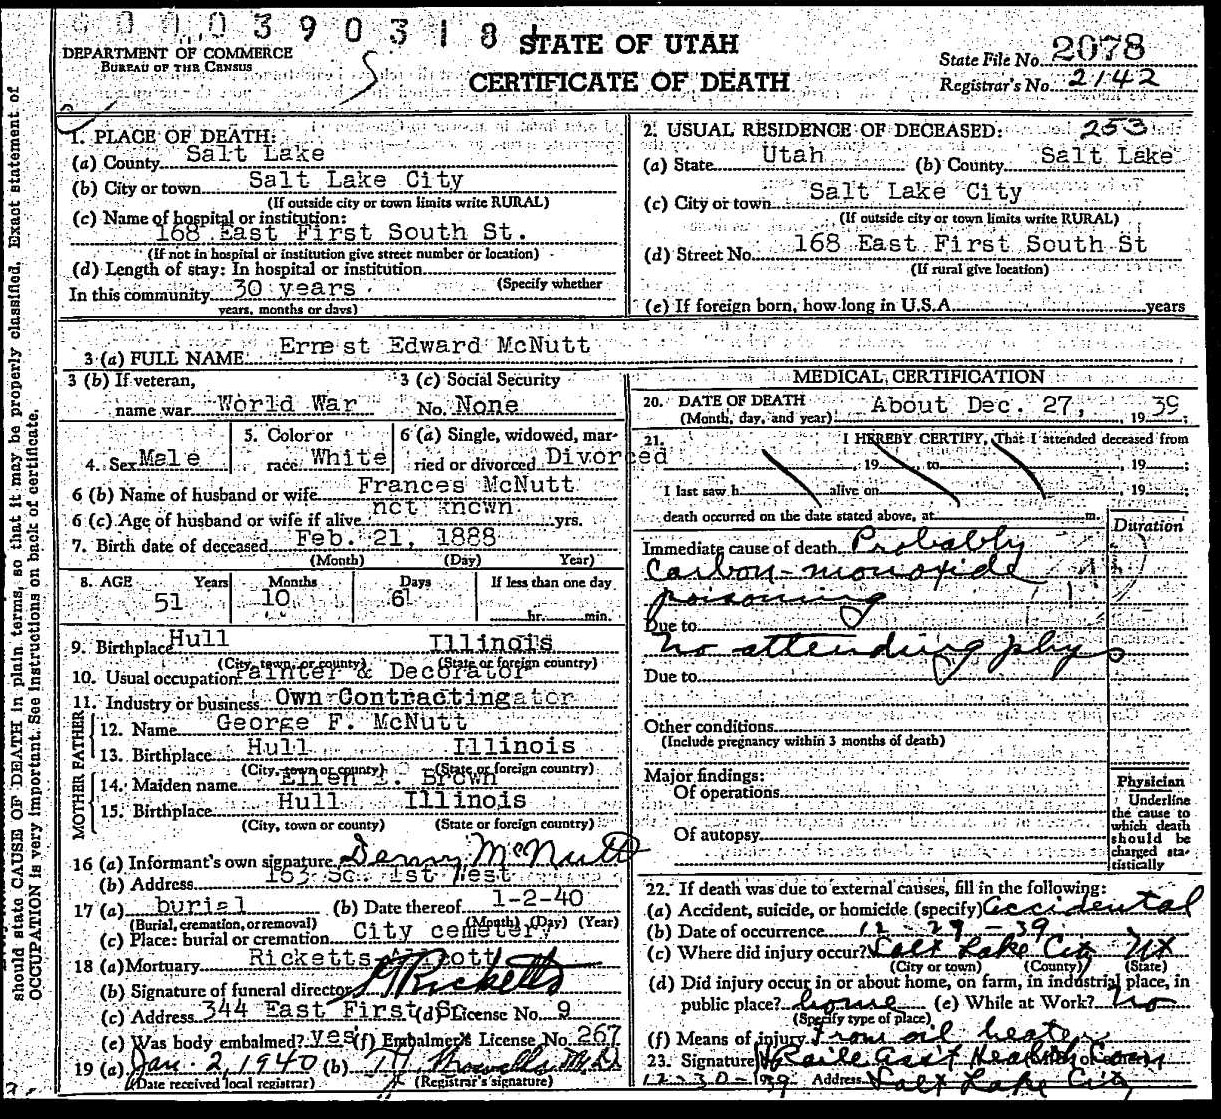 0 0 0 0 3 9 0 3 1 8
STATE OF UTAH
CERTIFICATE OF DEATH
DEPARTMENT OF COMMERCE
BUREAU OF THE CENSUS
State File No. 2078
Registrar's No. 2142
should state CAUSE OF DEATH in plain terms, so that it may be properly classified. Exact statement of
OCCUPATION is very important. See instructions on back of certificate.
1. PLACE OF DEATH:
(a) County Salt Lake
(b) City or town Salt Lake City
(If outside city or town limits write RURAL)
(c) Name of hospital or institution:
168 East First South St.
(If not in hospital or institution give street number or location)
(d) Length of stay: In hospital or institution
(Specify whether
In this community 30 years
years, months or days)
2. USUAL RESIDENCE OF DECEASED: 253
(a) State Utah (b) County Salt Lake
(c) City or town Salt Lake City
(If outside city or town limits write RURAL)
(d) Street No. 168 East First South St
(If rural give location)
(e) If foreign born, how long in U.S.A. years
3 (a) FULL NAME Ernest Edward McNutt
3 (b) If veteran, name war World War
3 (c) Social Security No. None
4. Sex Male
5. Color or race White
6 (a) Single, widowed, married or divorced Divorced
6 (b) Name of husband or wife Frances McNutt
6 (c) Age of husband or wife if alive not known yrs.
7. Birth date of deceased Feb. 21, 1888
(Month) (Day) Year)
8. AGE Years Months Days If less than one day
51 10 6 hr. min.
9. Birthplace Hull Illinois
(City, town, or county) (State or foreign country)
10. Usual occupation Painter & Decorator
11. Industry or business Own Contracting
FATHER
12. Name George F. McNutt
13. Birthplace Hull Illinois
(City, town or county) (State or foreign country)
MOTHER
14. Maiden name Ellen Brown
15. Birthplace Hull Illinois
(City, town or county) (State or foreign country)
16 (a) Informant's own signature Denny McNutt
(b) Address 163 So. 1st West
17 (a) burial (b) Date thereof 1-2-40
(Burial, cremation, or removal) (Month) (Day) (Year)
(c) Place: burial or cremation City cemetery
18 (a) Mortuary Ricketts
(b) Signature of funeral director Ricketts
(c) Address 344 East First So. (d) License No. 9
(e) Was body embalmed? yes (f) Embalmer's License No. 267
19 (a) Jan. 2, 1940 (b) M.D.
(Date received local registrar) (Registrar's signature)
MEDICAL CERTIFICATION
20. DATE OF DEATH
(Month, day, and year) About Dec. 27, 19 39;
21. I HEREBY CERTIFY, That I attended deceased from
, 19 , to , 19 ;
I last saw h alive on , 19 ;
death occurred on the date stated above, at m.
Duration
Immediate cause of death Probably
Carbon-monoxide
poisoning
Due to
No attending phys
Due to
Other conditions
(Include pregnancy within 3 months of death)
Major findings:
Of operations
Of autopsy
Physician
Underline
the cause to
which death
should be
charged sta-
tistically
22. If death was due to external causes, fill in the following:
(a) Accident, suicide, or homicide (specify) Accidental
(b) Date of occurrence 12-29-39
(c) Where did injury occur? Salt Lake City Ut
(City or town) (County) (State)
(d) Did injury occur in or about home, on farm, in industrial place, in
public place? home (e) While at Work? No
(Specify type of place)
(f) Means of injury From oil heater
23. Signature Asst Health Com
12-30-1939 Address Salt Lake City